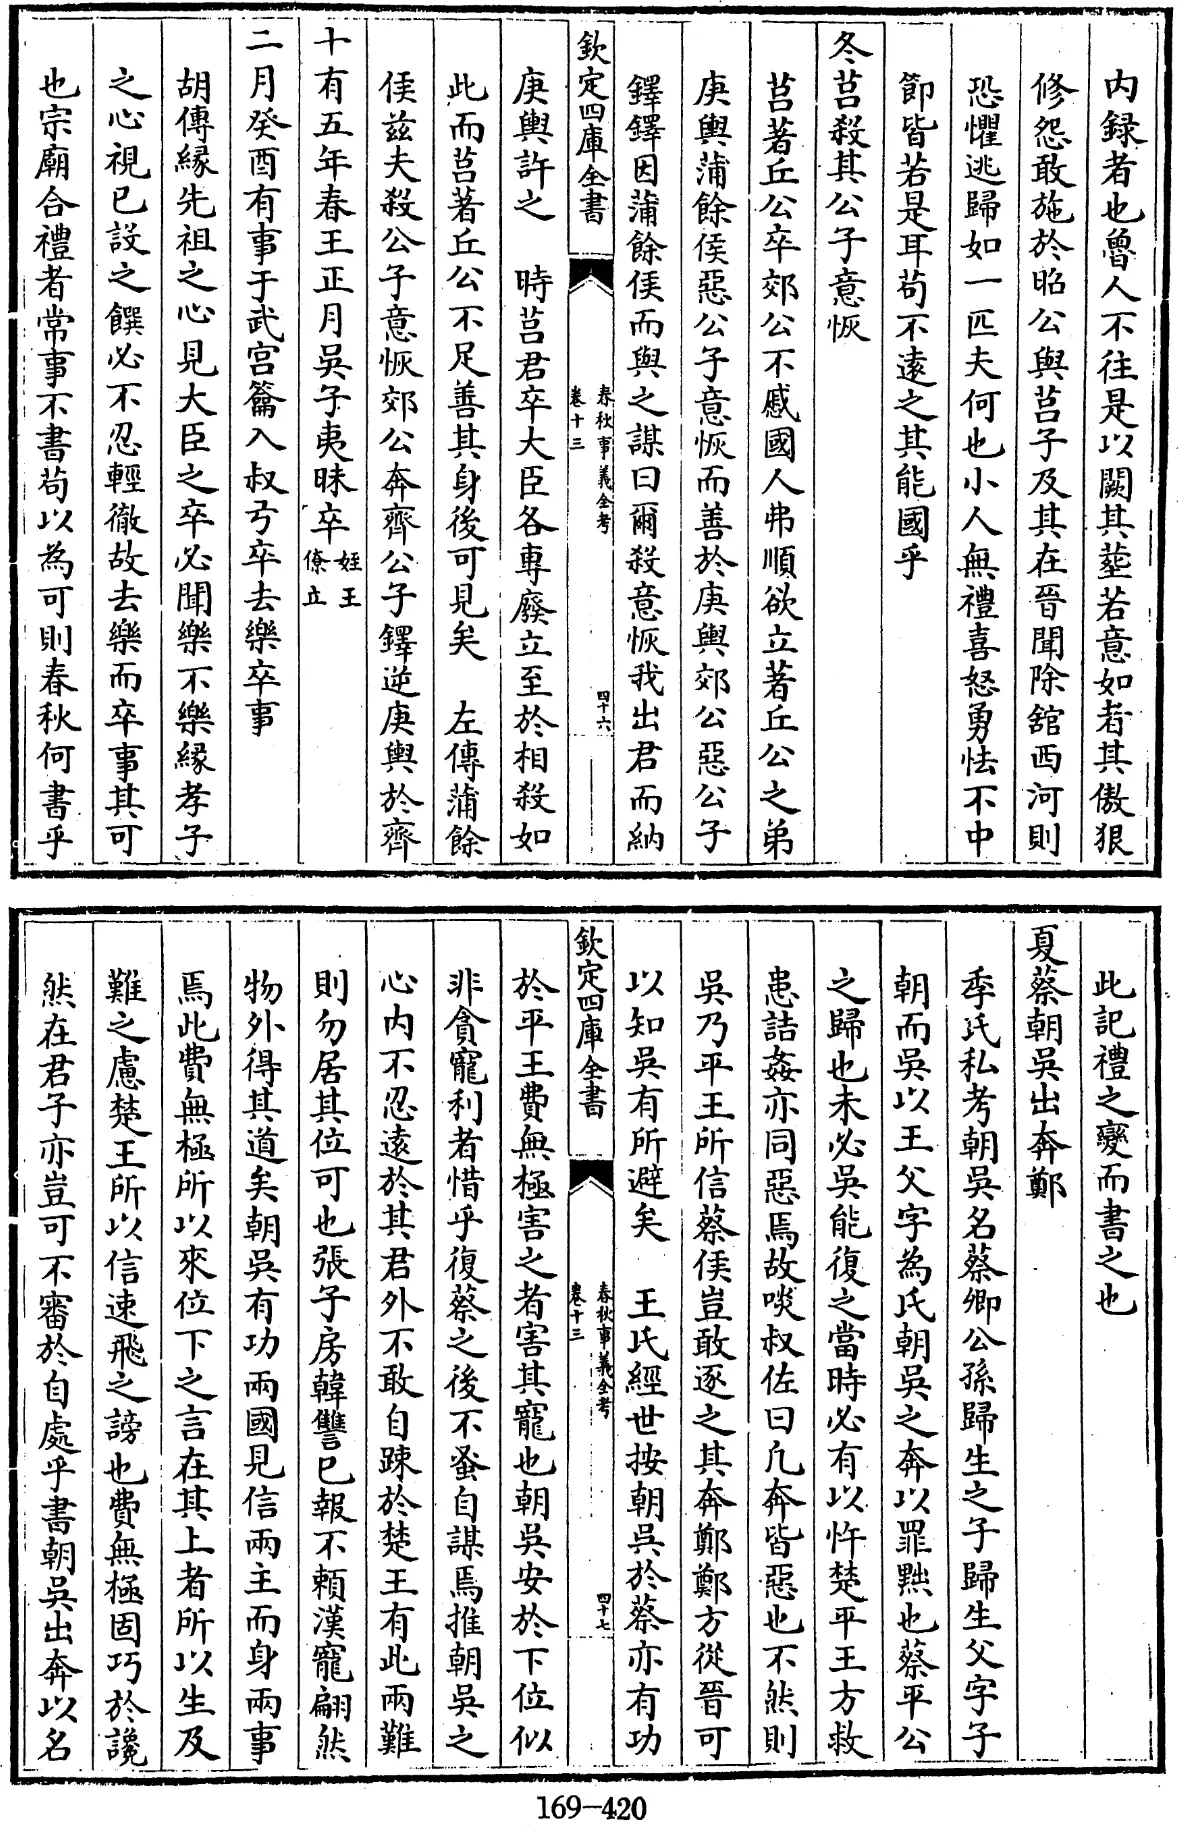 内録者也魯人不往是以闕其塟若意如者其傲狠
修怨敢施於昭公與莒子及其在晉聞除舘西河則
恐懼逃歸如一匹夫何也小人無禮喜怒勇怯不中
節皆若是耳苟不逺之其能國乎
冬莒殺其公子意恢
莒著丘公卒郊公不慼國人弗順欲立著丘公之弟
庚輿蒲餘侯惡公子意恢而善於庚輿郊公惡公子
鐸鐸因蒲餘侯而與之謀曰爾殺意恢我出君而納
欽定四庫全書
春秋事義全考
卷十三
四十六
庚輿許之 時莒君卒大臣各專廢立至於相殺如
此而莒著丘公不足善其身後可見矣 左傳蒲餘
侯兹夫殺公子意恢郊公奔齊公子鐸逆庚輿於齊
十有五年春王正月吳子夷昧卒 姪王
僚立
二月癸酉有事于武宫籥入叔弓卒去樂卒事
胡傳縁先祖之心見大臣之卒必聞樂不樂縁孝子
之心視已設之饌必不忍輕徹故去樂而卒事其可
也宗廟合禮者常事不書茍以為可則春秋何書乎
此記禮之變而書之也
夏蔡朝吳出奔鄭
季氏私考朝吳名蔡卿公孫歸生之子歸生父字子
朝而吳以王父字為氏朝吳之奔以罪黜也蔡平公
之歸也未必吳能復之當時必有以忤楚平王方救
患詰姦亦同惡焉故啖叔佐曰凡奔皆惡也不然則
吳乃平王所信蔡侯豈敢逐之其奔鄭鄭方從晉可
以知吳有所避矣 王氏經世按朝吳於蔡亦有功
欽定四庫全書
春秋事義全考
卷十三
四十七
於平王費無極害之者害其寵也朝吳安於下位似
非貪寵利者惜乎復蔡之後不蚤自謀焉推朝吳之
心内不忍逺於其君外不敢自踈於楚王有此兩難
則勿居其位可也張子房韓讐已報不頼漢寵翩然
物外得其道矣朝吳有功兩國見信兩主而身兩事
焉此費無極所以來位下之言在其上者所以生及
難之慮楚王所以信速飛之謗也費無極固巧於讒
然在君子亦豈可不審於自處乎書朝吳出奔以名
169-420